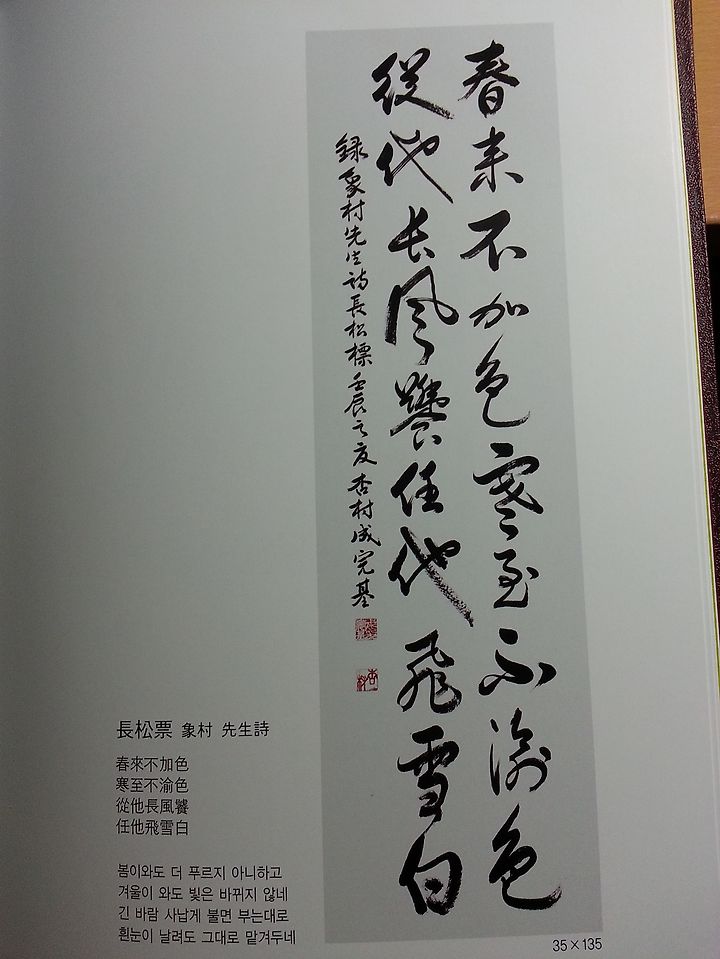 春来不加色寒至不渝色
從他長風饕任他飛雪白
録象村先生詩長松標壬辰之夏杏村成完基
長松票 象村 先生詩
春來不加色
寒至不渝色
從他長風饕
任他飛雪白
봄이와도 더 푸르지 아니하고
겨울이 와도 빛은 바뀌지 않네
긴 바람 사납게 불면 부는대로
흰눈이 날려도 그대로 맡겨두네
35×135